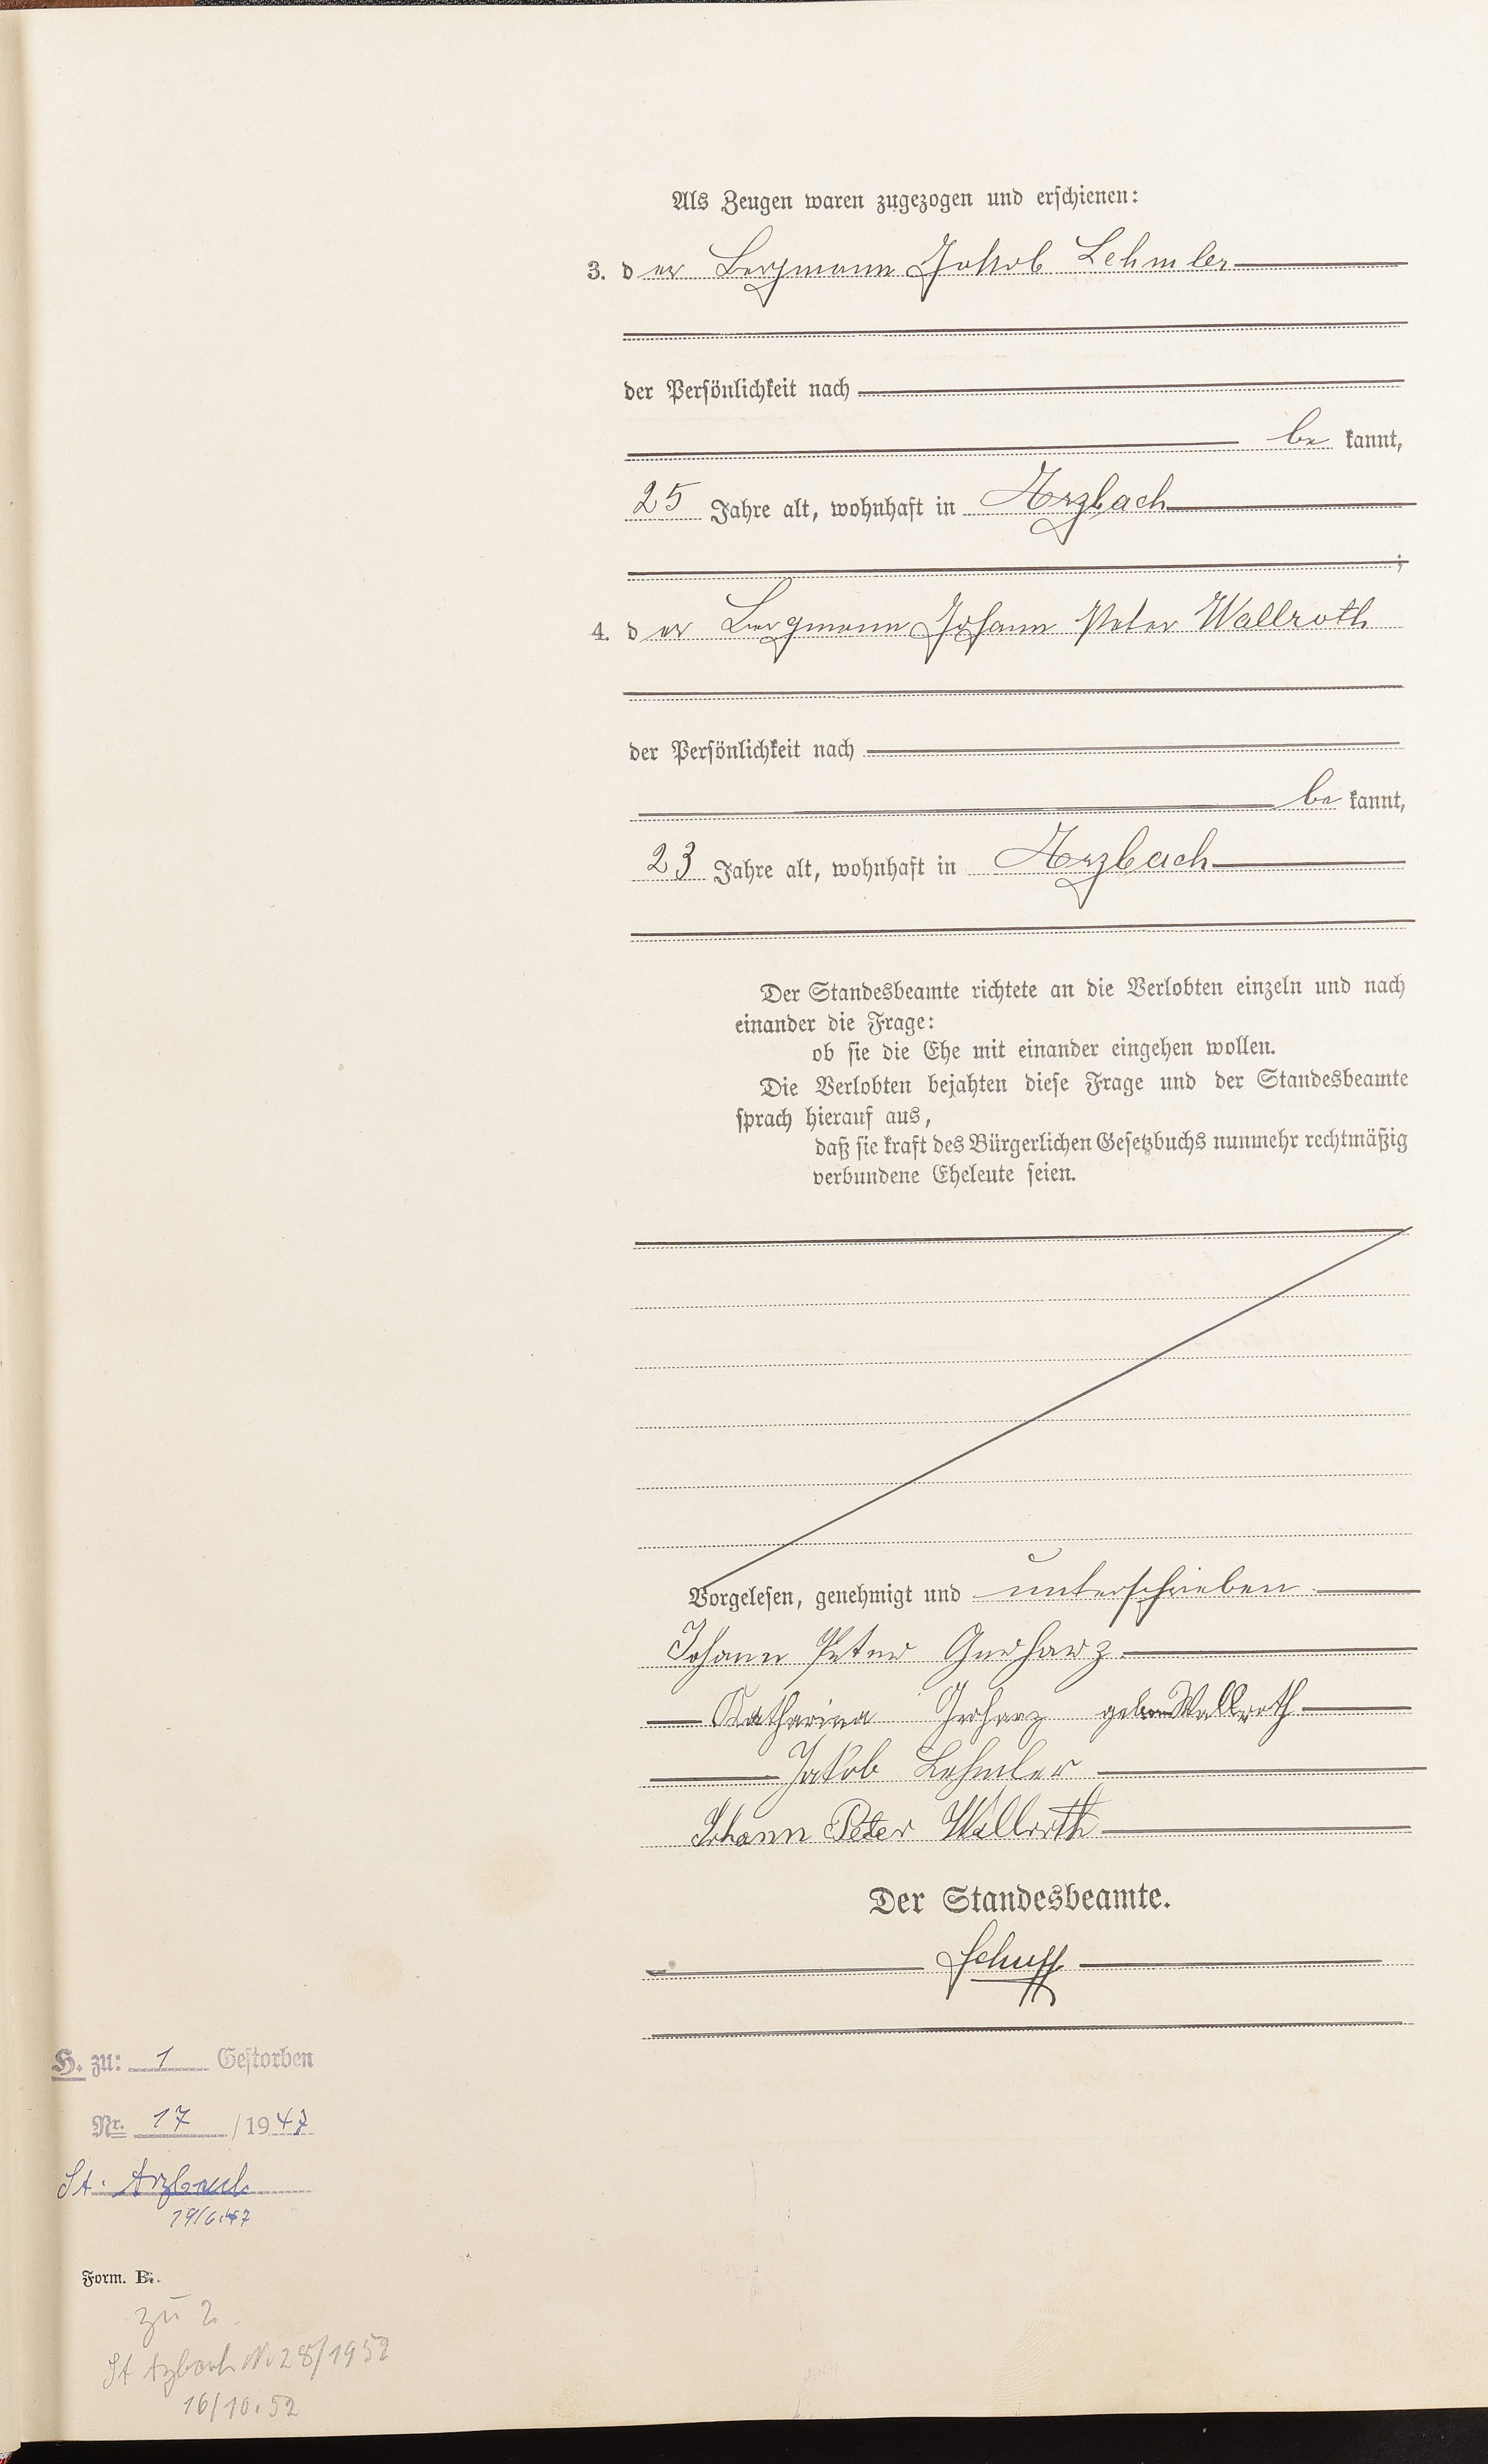 Als Zeugen waren zugezogen und erschienen:
3. der Bergmann Jakob Lehmler
der Persönlichkeit nach
be kannt,
25 Jahre alt, wohnhaft in Arzbach
;
4. der Bergmann Johann Peter Wallroth
der Persönlichkeit nach
be kannt,
23 Jahre alt, wohnhaft in Arzbach
Der Standesbeamte richtete an die Verlobten einzeln und nach
einander die Frage:
ob sie die Ehe mit einander eingehen wollen.
Die Verlobten bejahten diese Frage und der Standesbeamte
sprach hierauf aus,
daß sie kraft des Bürgerlichen Gesetzbuchs nunmehr rechtmäßig
verbundene Eheleute seien.
Vorgelesen, genehmigt und unterschrieben
Johann Peter Gerharz
Katharina Gerharz geborne Wallroth
Jakob Lehmler
Johann Peter Wallroth
Der Standesbeamte.
Schupp
H. zu: 1 Gestorben
Nr. 17 / 1947
St. Arzbach
19/6.47
Form. B.
zu 2.
St Arzbach Nr 28/1952
16/10.52